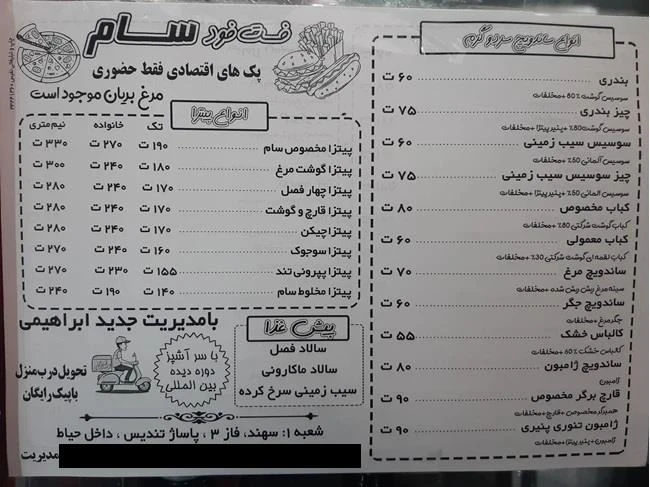 فست فود سام
پک های اقتصادی فقط حضوری
مرغ بریان موجود است
انواع پیتزا
تک خانواده نیم متری
پیتزا مخصوص سام ۱۹۰ ت ۲۷۰ ت ۳۳۰ ت
پیتزا گوشت مرغ ۱۸۰ ت ۲۴۰ ت ۳۰۰ ت
پیتزا چهار فصل ۱۷۰ ت ۲۴۰ ت ۲۸۰ ت
پیتزا قارچ و گوشت ۱۷۰ ت ۲۴۰ ت ۲۸۰ ت
پیتزا چیکن ۱۷۰ ت ۲۴۰ ت ۲۸۰ ت
پیتزا سوجوک ۱۶۰ ت ۲۴۰ ت ۲۷۰ ت
پیتزا پپرونی تند ۱۵۵ ت ۲۳۰ ت ۲۷۰ ت
پیتزا مخلوط سام ۱۴۰ ت ۱۹۰ ت ۲۴۰ ت
با مدیریت جدید ابراهیمی
پیش غذا
سالاد فصل
سالاد ماکارونی
سیب زمینی سرخ کرده
با سر آشپز
دوره دیده
بین المللی
تحویل درب منزل
با پیک رایگان
شعبه ۱: سهند، فاز ۳، پاساژ تندیس، داخل حیاط
مدیریت
انواع ساندویچ سرد و گرم
بندری ۶۰ ت
سوسیس گوشت ۸۰٪ +مخلفات
چیز بندری ۷۵ ت
سوسیس گوشت ۸۰٪ +پنیر پیتزا +مخلفات
سوسیس سیب زمینی ۶۰ ت
سوسیس آلمانی ۵۰٪ +مخلفات
چیز سوسیس سیب زمینی ۷۵ ت
سوسیس آلمانی ۵۰٪ +پنیر پیتزا +مخلفات
کباب مخصوص ۸۰ ت
کباب گوشت شرکتی ۸۰٪ +مخلفات
کباب معمولی ۶۰ ت
کباب لقمه ای گوشت شرکتی ۳۰٪ +مخلفات
ساندویچ مرغ ۷۰ ت
سینه مرغ ریش ریش شده +مخلفات
ساندویچ جگر ۶۰ ت
جگر مرغ +مخلفات
کالباس خشک ۵۵ ت
کالباس خشک ۶۰٪ +مخلفات
ساندویچ ژامبون ۸۰ ت
ژامبون
قارچ برگر مخصوص ۹۰ ت
همبرگر مخصوص +قارچ +مخلفات
ژامبون تنوری پنیری ۹۰ ت
ژامبون +پنیر پیتزا +مخلفات